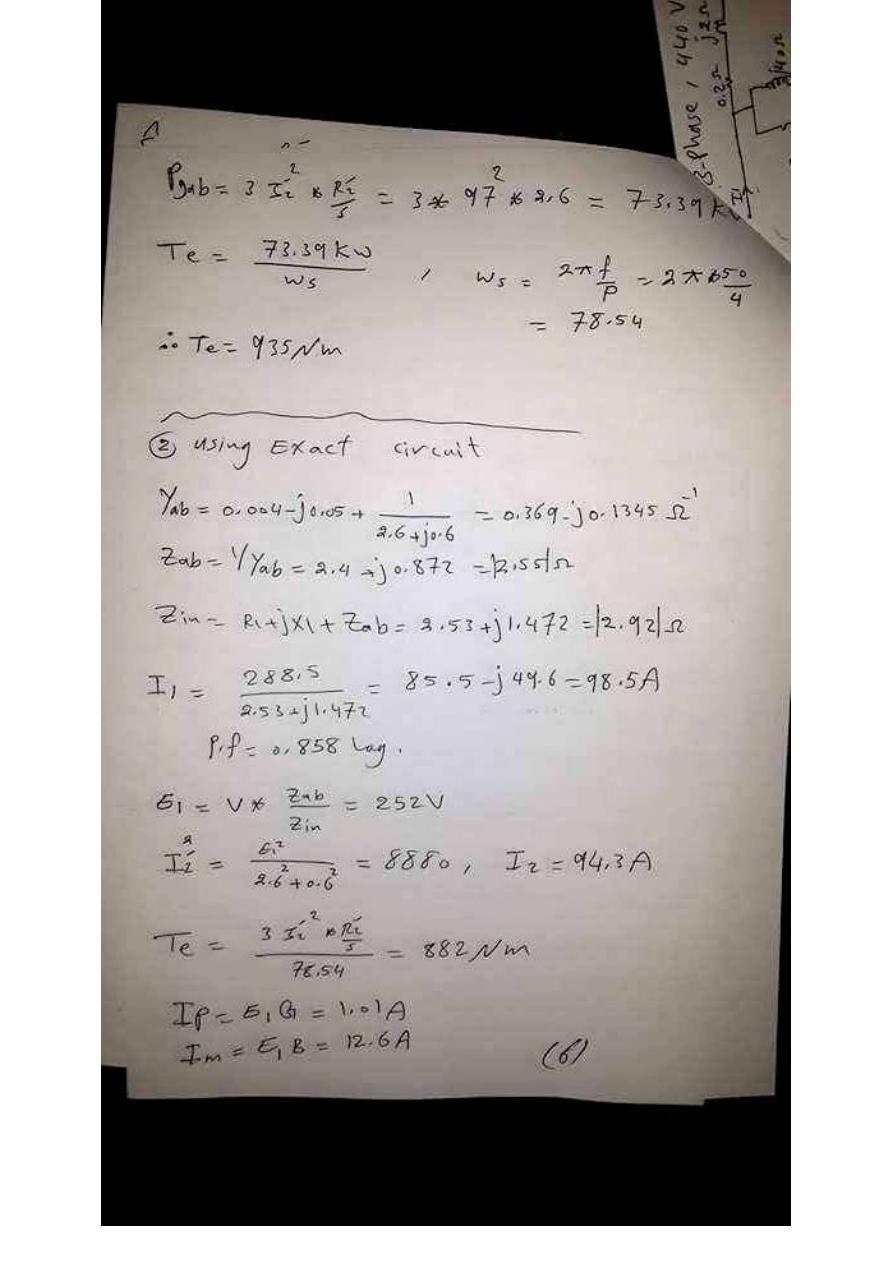 3-phase, 440 V
0.2Ω j2Ω
j40Ω
Pgab = 3 I2′² * R2′/s = 3 * 97² * 2.6 = 73.39 k
Te = 73.39 kW / ws , ws = 2π f/P = 2π * 50/4
= 78.54
∴ Te = 935 Nm
② using Exact circuit
Yab = 0.004 - j0.05 + 1/(2.6+j0.6) = 0.369 - j0.1345 Ω⁻¹
Zab = 1/Yab = 2.4 + j0.872 = |2.55| Ω
Zin = R1 + jX1 + Zab = 2.53 + j1.472 = |2.92| Ω
I1 = 288.5 / (2.53 + j1.472) = 85.5 - j49.6 = 98.5 A
P.f = 0.858 Lag.
E1 = V * Zab/Zin = 252 V
I2′² = E1² / (2.6² + 0.6²) = 8880 , I2 = 94.3 A
Te = 3 I2′² * R2′/s / 78.54 = 882 Nm
Ip = E1 G = 1.01 A
Im = E1 B = 12.6 A
(6)